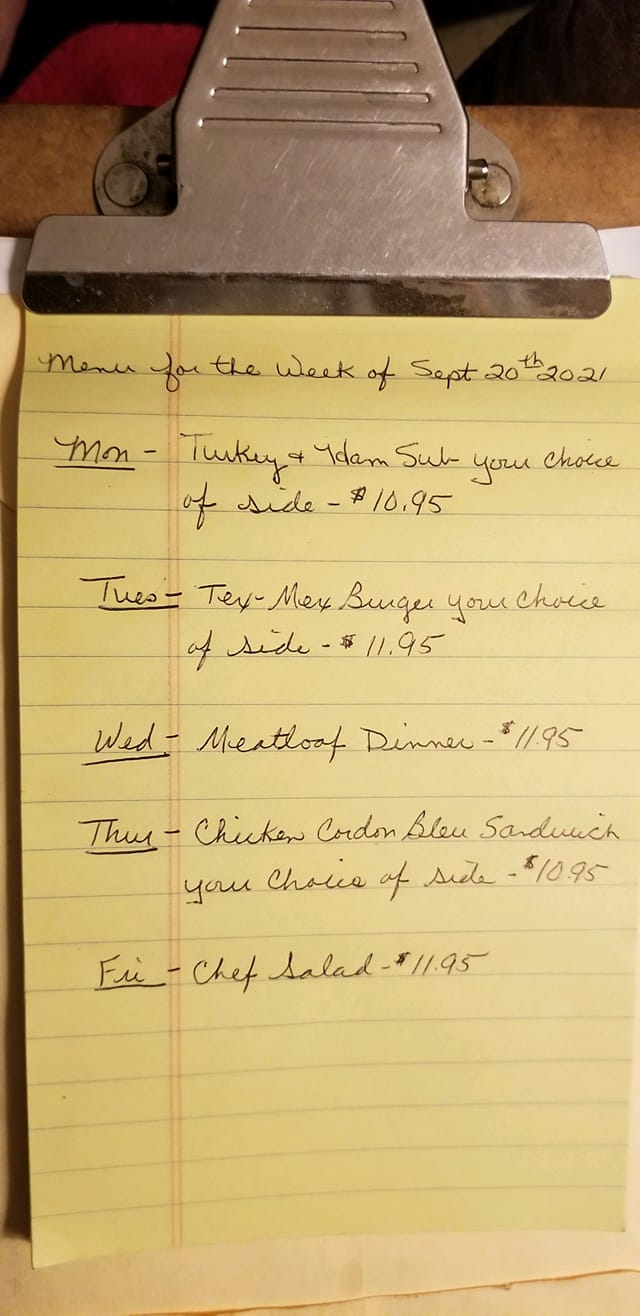 Menu for the Week of Sept 20th 2021
Mon - Turkey + Ham Sub your choice
of side - $10.95
Tues - Tex-Mex Burger your choice
of side - $11.95
Wed - Meatloaf Dinner - $11.95
Thur - Chicken Cordon Bleu Sandwich
your choice of side - $10.95
Fri - Chef Salad - $11.95